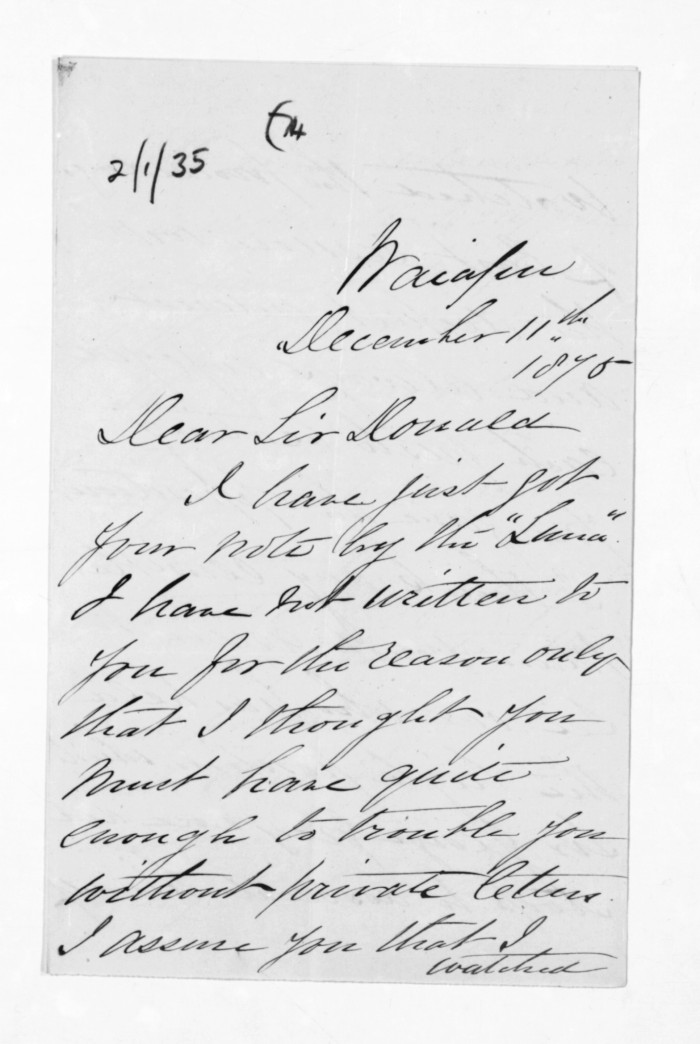 2/1/35
Decemher 11th
1875
Dear Sir Donald
I have just got
your note by the "Luna".
I have not written to
you for the reason only
that I thought you
must have quite
enough to trouble you
without private letters.
I assure you that I
watched